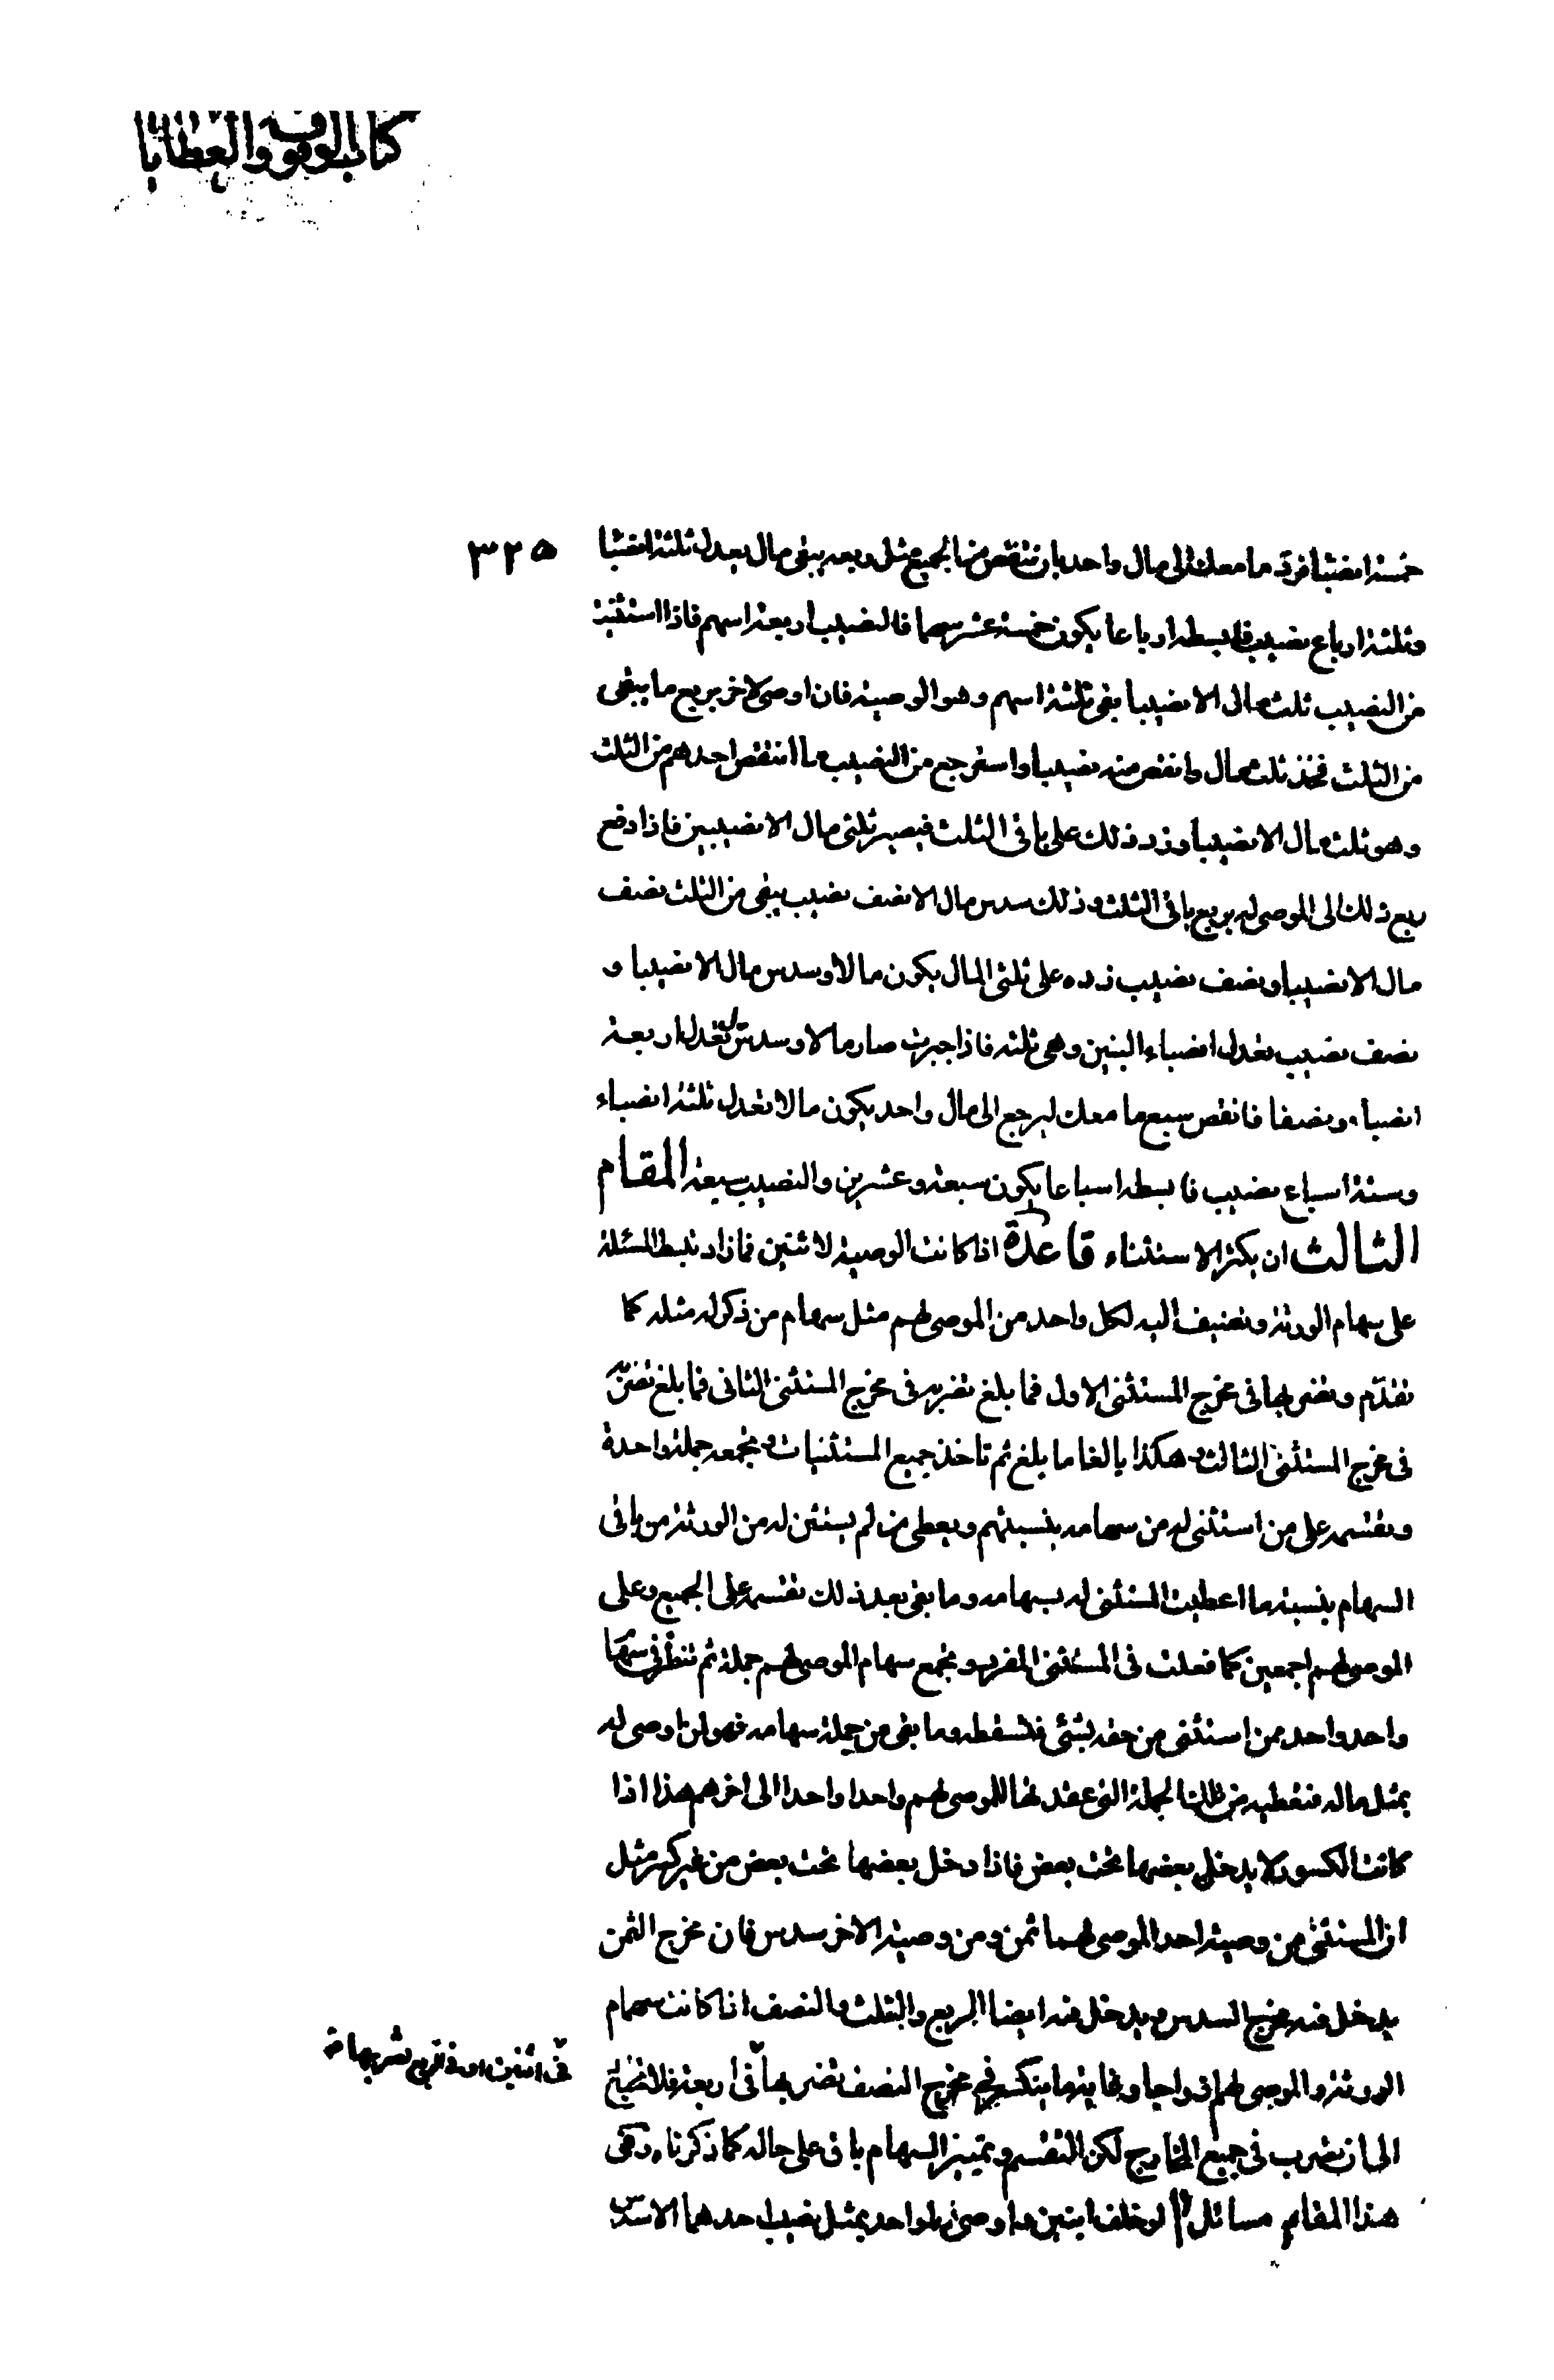 كتاب الوقوف والعطايا
٣٢٥
خمسة انصباء فرد ما معك الى مال واحد بان تنقص من الجميع مثل ربعه يبقى مال يعدل ثلثة انصباء
وثلثة ارباع نصيب فابسطه ارباعا يكون خمسة عشر سهما فالنصيب اربعة اسهم فاذا استثنيت
من النصيب ثلث مال الا نصيبا بقى ثلثة اسهم وهو الوصية فان اوصى لاخر بربع ما يبقى
من الثلث فخذ ثلث مال وانقص منه نصيبا واسترجع من النصيب ما انتقص احدهم من الثلث
وهو ثلث مال الا نصيبا وزد ذلك على باقى الثلث فيصير ثلثى مال الا نصيبين فاذا دفع
ربع ذلك الى الموصى له بربع باقى الثلث وذلك سدس مال الا نصف نصيب يبقى من الثلث نصف
مال الا نصيبا ونصف نصيب زده على ثلثى المال يكون مالا وسدس مال الا نصيبا و
نصف نصيب تعدل انصباء البنين وهى ثلثة فاذا جبرت صار مالا وسدس مال تعدل اربعة
انصباء ونصفا فانقص سبع ما معك ليرجع الى مال واحد يكون مالا تعدل ثلثة انصباء
وستة اسباع نصيب فابسطه اسباعا يكون سبعة وعشرين والنصيب سبعة المقام
الثالث ان يكثر الاستثناء قاعدة اذا كانت الوصية لاثنين فمازاد تبسط المسئلة
على سهام الورثة وتضيف اليه لكل واحد من الموصى لهم مثل سهام من ذكر له مثله كما
تقدّم وتضربها فى مخرج المستثنى الاول فما بلغ تضربه فى مخرج المستثنى الثانى فما بلغ تضربه
فى مخرج المستثنى الثالث وهكذا بالغا ما بلغ ثم تاخذ جميع المستثنيات وتجمعه جملة واحدة
وتقسمه على من استثنى له من سهامه بنسبتهم ويعطى من لم يستثن له من الورثة من باقى
السهام بنسبة ما اعطيت المستثنى له بسهامه وما بقى بعد ذلك تقسمه على الجميع وعلى
الموصى لهم اجمعين كما فعلت فى المستثنى المفرد وتجمع سهام الموصى لهم جملة ثم تنظر فى سهام
واحد واحد ممن استثنى من حقه بشئ فتسقطه وما بقى من جملة سهامه فهو لمن اوصى له
بمثل ماله فتعطيه من تلك الجملة التى عقدتها للموصى لهم واحدا واحدا الى اخرهم هذا اذا
كانت الكسور لا يدخل بعضها تحت بعض فاذا دخل بعضها تحت بعض من غير كسر مثل
ان المستثنى من وصية احد الموصى لهما ثمن ومن وصية الاخر سدس فان مخرج الثمن
يدخل فيه مخرج السدس ويدخل فيه ايضا الربع والثلث والنصف اذا كانت سهام
الورثة والموصى لهم ازواجا وغايته ما ينكسر فى مخرج النصف تضربها فى اربعة فلا تحتاج
فى اثنين او فى الربع تضربها
الى ان تضرب فى جميع المخارج لكن التقسيم وتمييز السهام باق على حاله كما ذكرناه وفى
هذا المقام مسائل ا لو خلف ابنين واوصى لواحد بمثل نصيب احدهما الا سدس